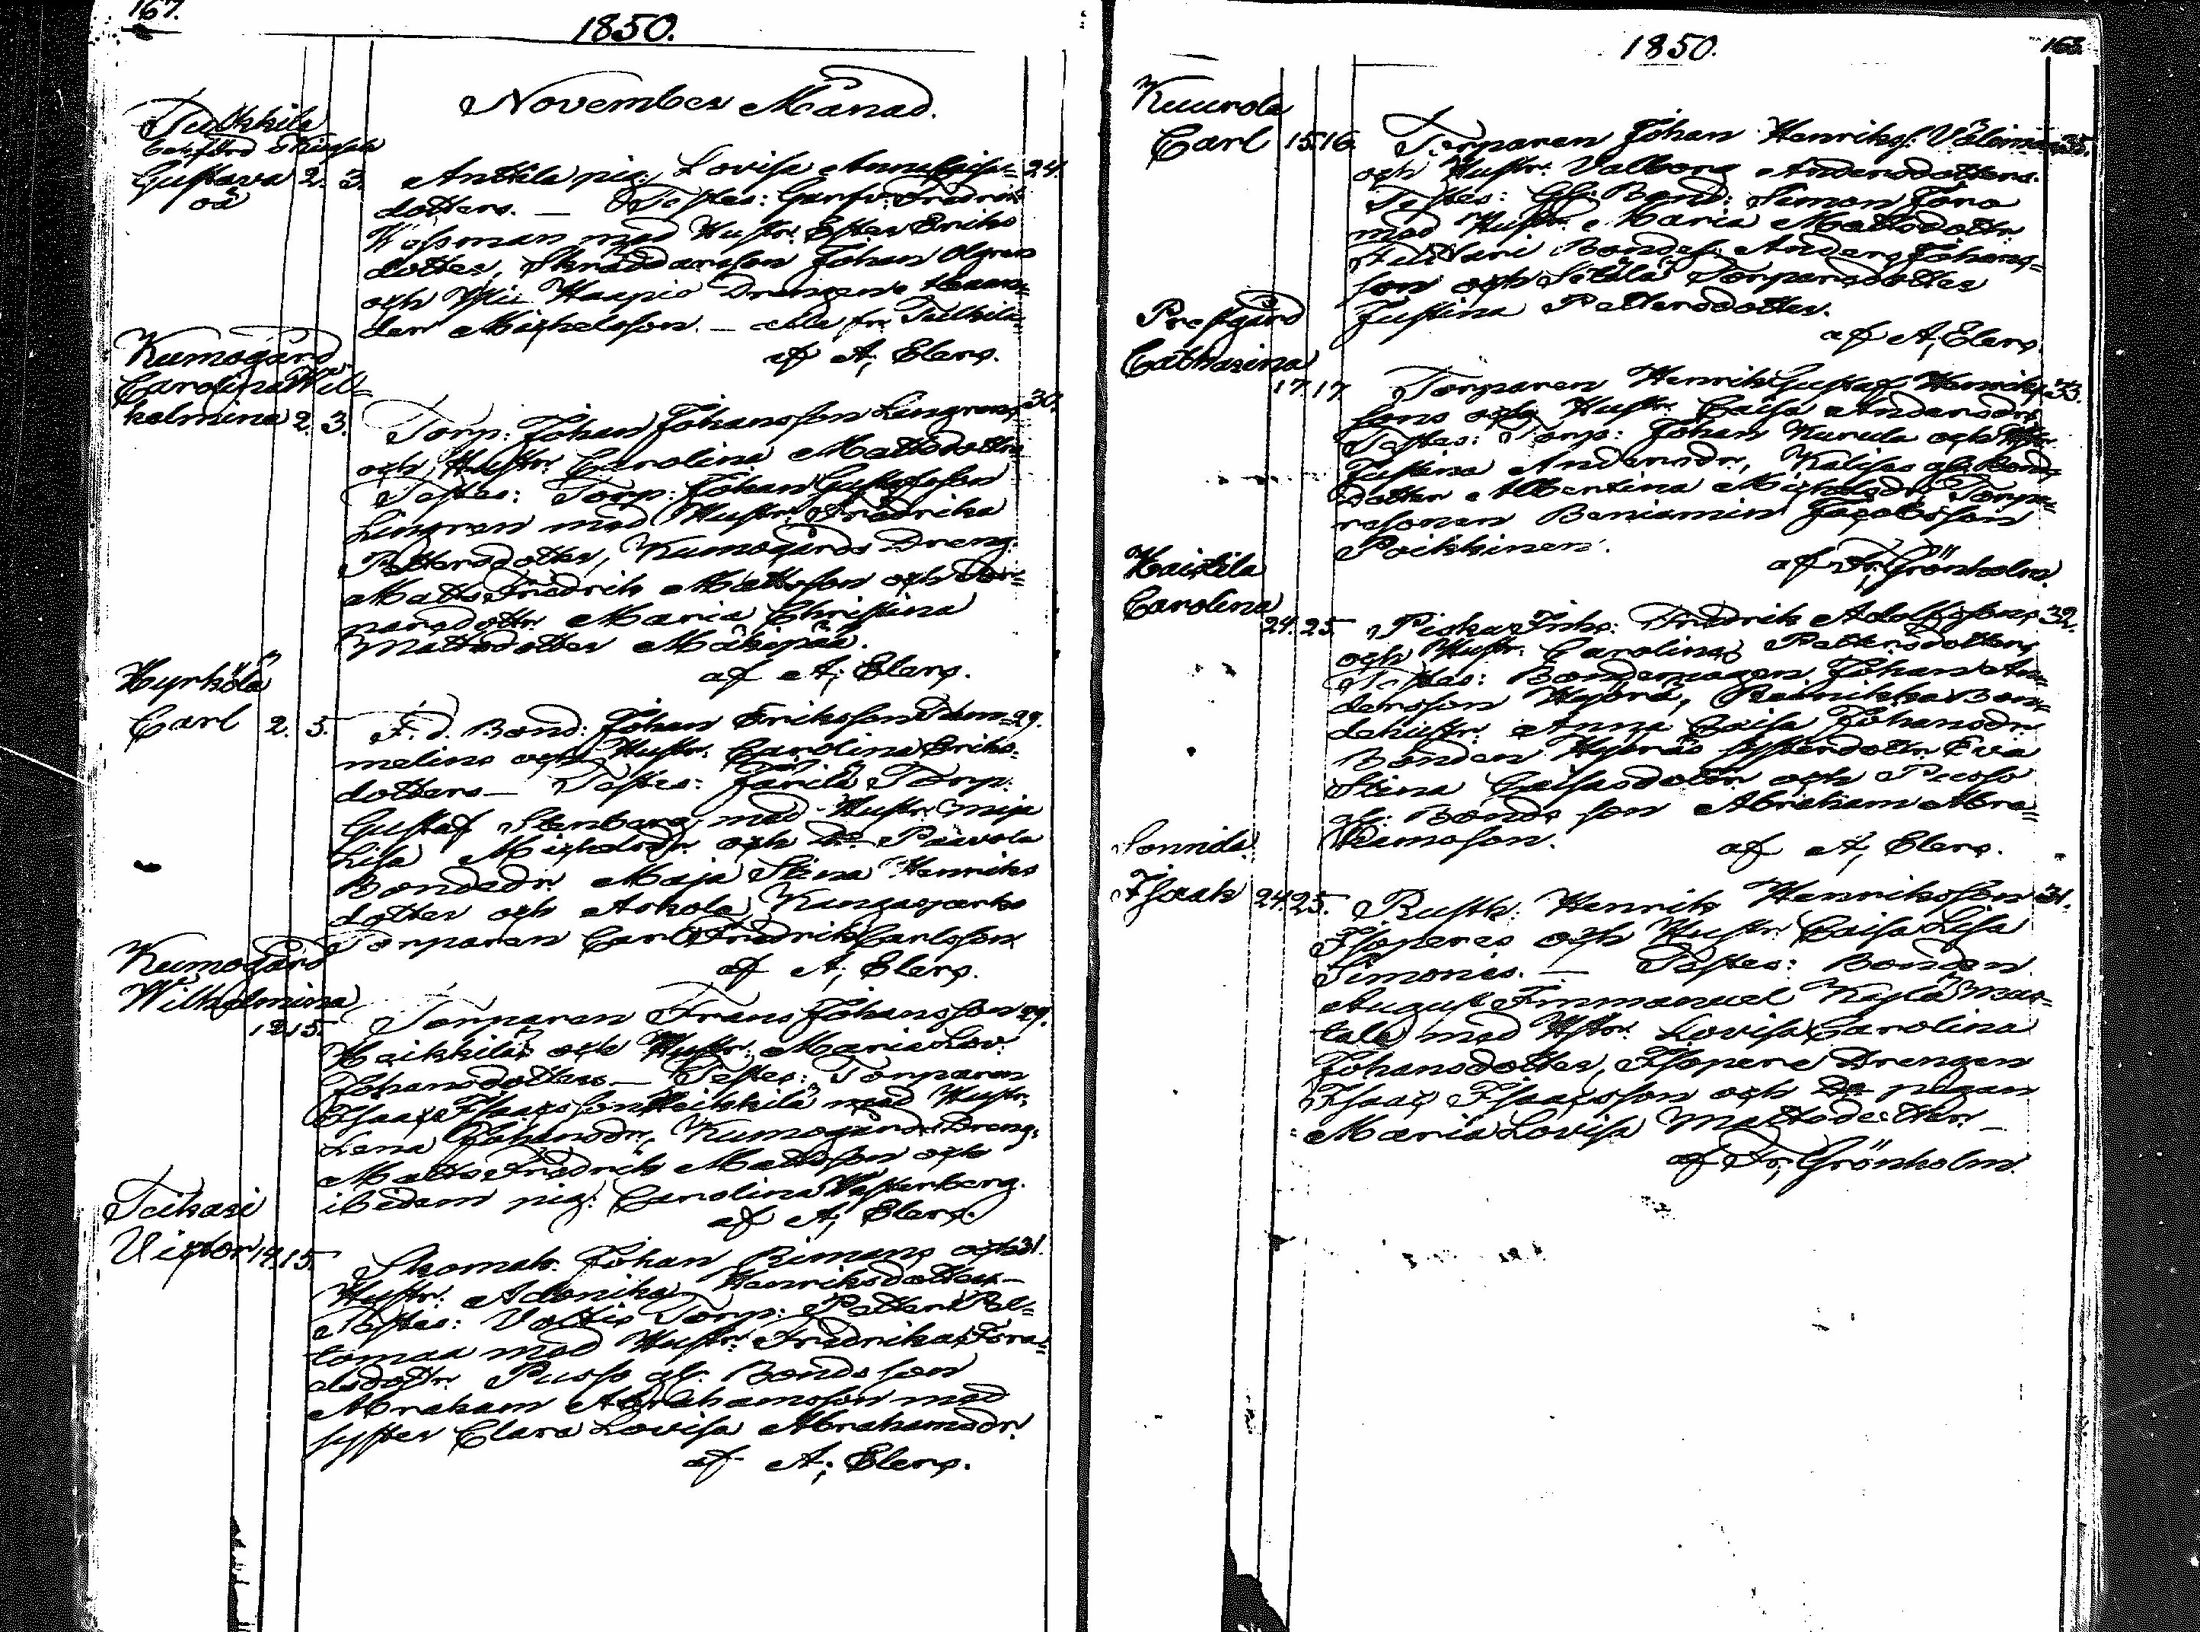 167.
1850.
November Månad.
Tulkkila
Gustava 2. 3. Anttila pig. Lovisa Anna Caisa= 24.
oä
dotters. — Testes: Garfv. Fredrik
Wossman med Hustr. Ester Eriks
dotter, Skräddarsson Johan Olgren
och Haapio Drengen
der Michelsson. — alla fr. Tulkkila
af A; Elers.
Kumogård
Carolina Wil=
helmina 2. 3. Torp: Johan Johansson Lingrens 30.
och Hustr. Carolina Mattsdottrs
Testes: Torp: Johan Gustafsson
Lingren med Hustr. Fredrika
Pettersdotter, Kumogårds Dreng.
Matts Fredrik Mattsson och Tor=
paredottr. Maria Christina
Mattsdotter Mäkipää.
af A; Elers.
Hyrkölä
Carl 2. 5. F. d. Bond: Johan Eriksson Tom= 29.
melins och Hustr. Carolina Eriks=
dotters — Testes: Järilä Torp:
Gustaf Stenberg med Hustr. Maja
Lisa Michelsdr. och Päävola
Bondedr. Maja Stina Henriks
dotter och Askola Kangasparko
Torparen Carl Fredrik Carlsson
af A; Elers.
Kumogård
Wilhelmina
12. 15. Torparen Frans Johansson 29.
Haikkiläs och Hustr. Maria Lov.
Johansdotters — Testes: Torparen
Isaac Isaacsson Heikkilä med Hustr.
Lena Johansdr, Kumogårds Dreng.
Matts Fredrik Mattsson och
ibidem pig: Carolina Westerberg.
af A; Elers.
Teikari
Victor 14. 15. Skomak. Johan Rimans och 31.
Hustr. Adonika Henriksdotters —
Testes: Voltis Torp: Petter Pel=
tomaa med Hustr. Fredrika Isra=
elsdottr. Pusso gl. Bonds son
Abraham Abrahamsson med
syster Clara Lovisa Abrahamsdr.
af A; Elers.
1850.
168.
Kuurola
Carl 15. 16. Torparen Johan Henrikss. Välimaas 35.
och Hustr. Valborg Andersdotters.
Testes: Gl. Bond. Simon Joro
med Hustr. Maria Mattsdottr.
Bondes. Anders Johans=
son och Torparedotter
Justina Pettersdotter.
af A; Elers.
Prestgård
Catharina
17. 17 Torparen Henrik Gustaf Henriks 33.
sons och Hustr. Caisa Andersdrs
Testes: Torp: Johan Kurula och Hstr.
Justina Andersdr., gl. Bonds
dotter Albertina Michelsdr. Torpa=
resonen Beniamin Jacobsson
Poikkinen.
af Fr; Grönholm.
Haistila
Carolina
24. 25. Inhs: Fredrik Adolfssons 32.
och Hustr. Carolina Pettersdotters
Testes: Bondemagen Johan An=
dersson Hyörä, Bon=
dehustr. Anna Caisa Johansdr.
Bonden Hyöräs systerdottr. Eva
Stina Caisasdottr. och Pusso
gl. Bonds son Abraham Abra=
hamsson.
af A; Elers.
Sonnila
Isaak 24. 25. Rustk: Henrik Henriksson 31.
Isoperes och Hustr. Caisa Lisa
Simonis. — Testes: Bonden
August Immanuel Kylä Mas=
tala med Hstr. Lovisa Carolina
Johansdotter, Isopere Drengen
Isaac Isaacsson och Do pigan
Maria Lovisa Mattsdotter —
af Fr; Grönholm.